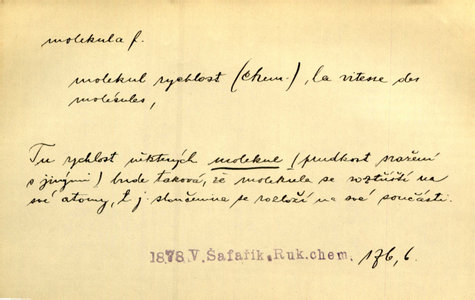 molekula f.
molekul rychlost (chem.), la vitesse des
molécules,
Tu rychlost některých molekul (prudkost sražení
s jinými) bude taková, že molekula se roztříští na
své atomy, t. j. sloučenina se rozloží na své součásti.
1878.V.Šafařík.Ruk.chem. 176,6.